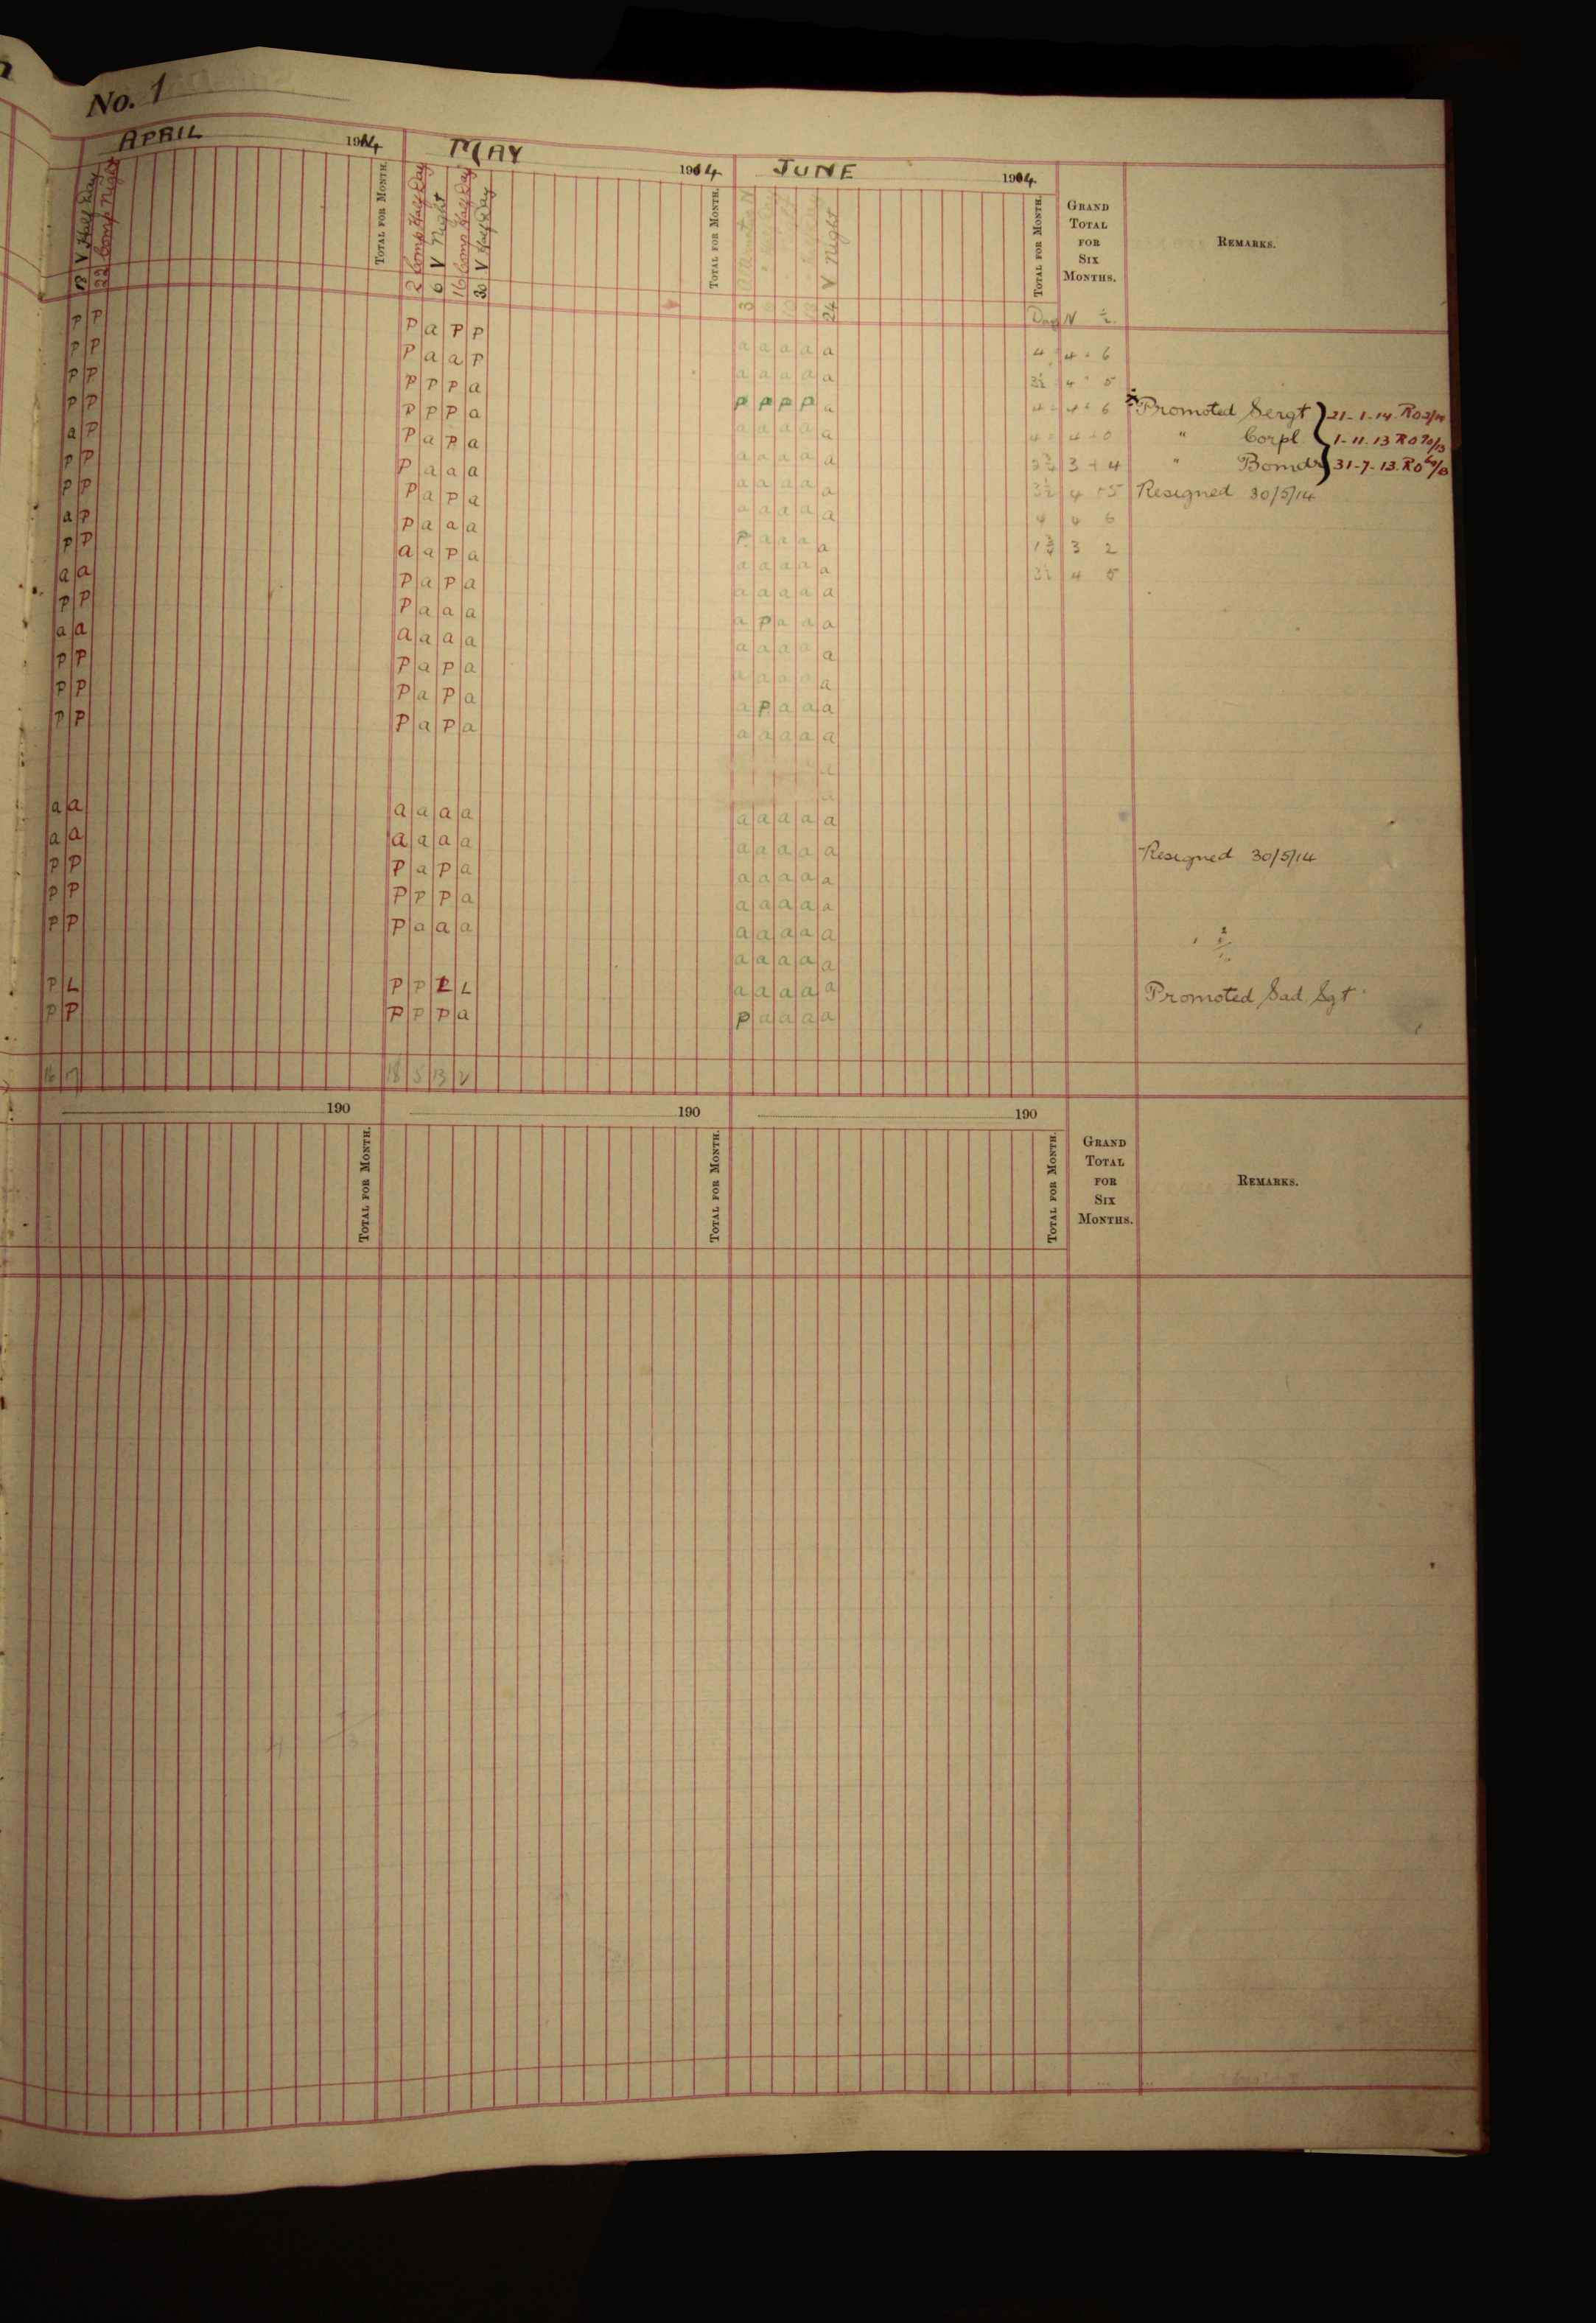 No. 1
APRIL 1914
MAY 1914
JUNE 1914
18 V Half Day
22 Comp Night
TOTAL FOR MONTH.
2 Comp Half Day
6 V Night
16 Comp Half Day
30 V Half Day
TOTAL FOR MONTH.
3
24 V Night
TOTAL FOR MONTH.
GRAND TOTAL FOR SIX MONTHS.
REMARKS.
Day N ½
P P P a P P a a a a a 4 4 6
P P P a a P a a a a a 3½ 4 5
P P P P P a P P P P a 4 4 6 Promoted Sergt 21-1-14 RO
P P P P P a a a a a a 4 4 " Corpl 1-11-13 RO
a P P a P a a a a a a 3 4 " Bomdr 31-7-13 RO
P P P a a a a a a a a 3½ 4 5 Resigned 30/5/14
P P P a P a a a a a a 4 4 6
a P P a a a P a a a a 1¾ 3 2
P P a a P a a a a a a 3½ 4 5
a a P a P a a a a a a
P P P a a a a P a a a
a a a a a a a a a a a
P P P a P a a a
P P P a P a a P a a a
P P P a P a a a a a a
a a a a a a a a a a a
a a a a a a a a a a a Resigned 30/5/14
P P P a P a a a a a a
P P P P P a a a a a a
P P P a a a a a a a a
a a a a a
P L P P L L a a a a a Promoted Sad Sgt
P P P P P a P a a a a
16 17 18 5 13 2
190
190
190
TOTAL FOR MONTH.
TOTAL FOR MONTH.
TOTAL FOR MONTH.
GRAND TOTAL FOR SIX MONTHS.
REMARKS.